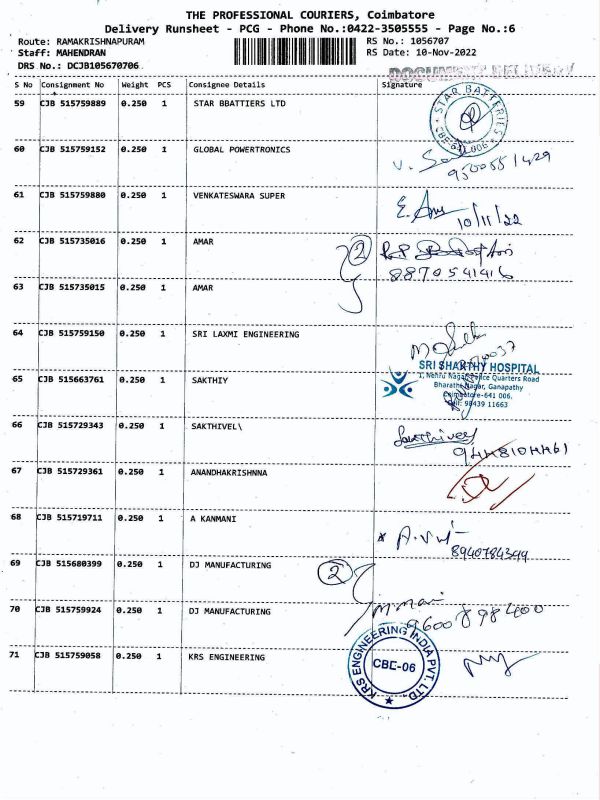 THE PROFESSIONAL COURIERS, Coimbatore
Delivery Runsheet - PCG - Phone No.:0422-3505555 - Page No.:6
Route: RAMAKRISHNAPURAM RS No.: 1056707
Staff: MAHENDRAN RS Date: 10-Nov-2022
DRS No.: DCJB105670706
DOCUMENT DELIVERY
S No Consignment No Weight PCS Consignee Details Signature
59 CJB 515759889 0.250 1 STAR BBATTIERS LTD
STAR BATTERIES
CBE-641 006
60 CJB 515759152 0.250 1 GLOBAL POWERTRONICS
9500551429
61 CJB 515759880 0.250 1 VENKATESWARA SUPER
10/11/22
62 CJB 515735016 0.250 1 AMAR
2
8870541416
63 CJB 515735015 0.250 1 AMAR
64 CJB 515759150 0.250 1 SRI LAXMI ENGINEERING
SRI SHAKTHY HOSPITAL
1, Nehru Nagar, Police Quarters Road
65 CJB 515663761 0.250 1 SAKTHIY
Bharathi Nagar, Ganapathy
Coimbatore-641 006.
98439 11663
66 CJB 515729343 0.250 1 SAKTHIVEL\
Sakthivel
9448104461
67 CJB 515729361 0.250 1 ANANDHAKRISHNNA
68 CJB 515719711 0.250 1 A KANMANI
8940784399
69 CJB 515680399 0.250 1 DJ MANUFACTURING
2
70 CJB 515759924 0.250 1 DJ MANUFACTURING
9600898400
71 CJB 515759058 0.250 1 KRS ENGINEERING
KRS ENGINEERING INDIA PVT. LTD
CBE-06